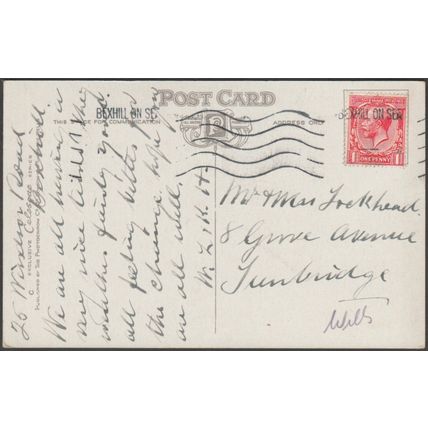 POST CARD
BEXHILL ON SEA
BEXHILL ON SEA
THIS SPACE FOR COMMUNICATION
ADDRESS ONLY
ONE PENNY
25 Windsor Road
Bexhill
We are all having a
very nice time. The
weather fairly good
all feeling better for
the change. hope you
are all well.
Mr & Mrs Lockhead.
8 Grove Avenue
Tunbridge
Wells
EXCLUSIVE Celesque SERIES
PUBLISHED BY THE PHOTOCHROM CO